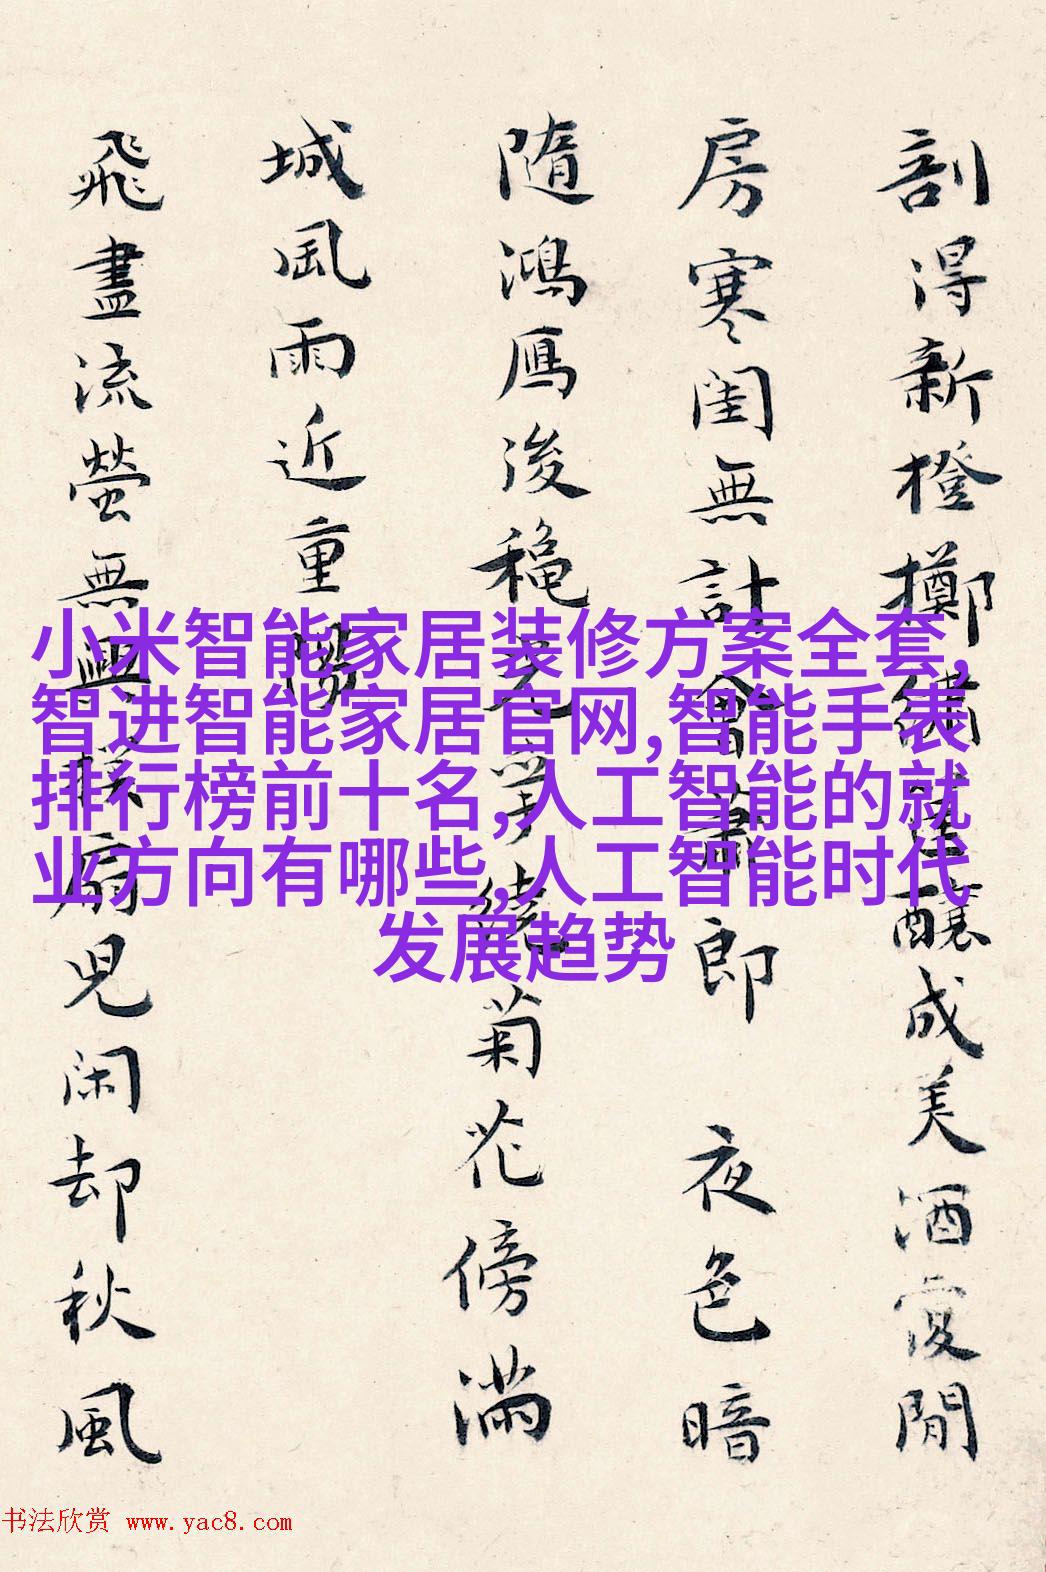 剖得新橙擲繡 釀成美酒復閒
房寒閨無計會蕭郎 夜色暗
隨鴻鴈後穐光夢繞菊花傍滿
城風雨近重陽
飛盡流螢無興撲扇兒閑却秋風
小米智能家居装修方案全套,
智进智能家居官网,智能手表
排行榜前十名,人工智能的就
业方向有哪些,人工智能时代
发展趋势
书法欣赏 www.yac8.com